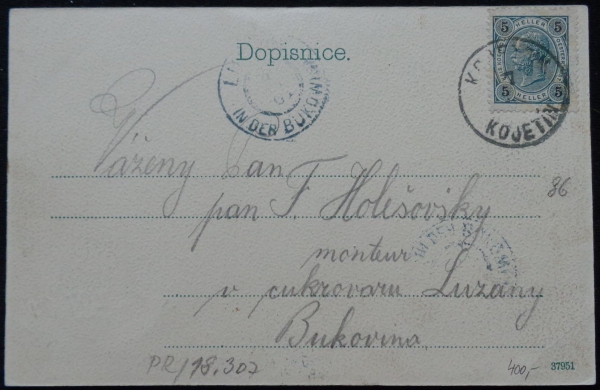 Dopisnice.
5 5
HELLER
5 5
HELLER
KOJETÍN
IN DER BUKOWINA
Vážený Pan
pan F. Holešovský
monteur
IN DER
v cukrovaru Lužany
Bukovina
86
PR/18.307
400,-
37951